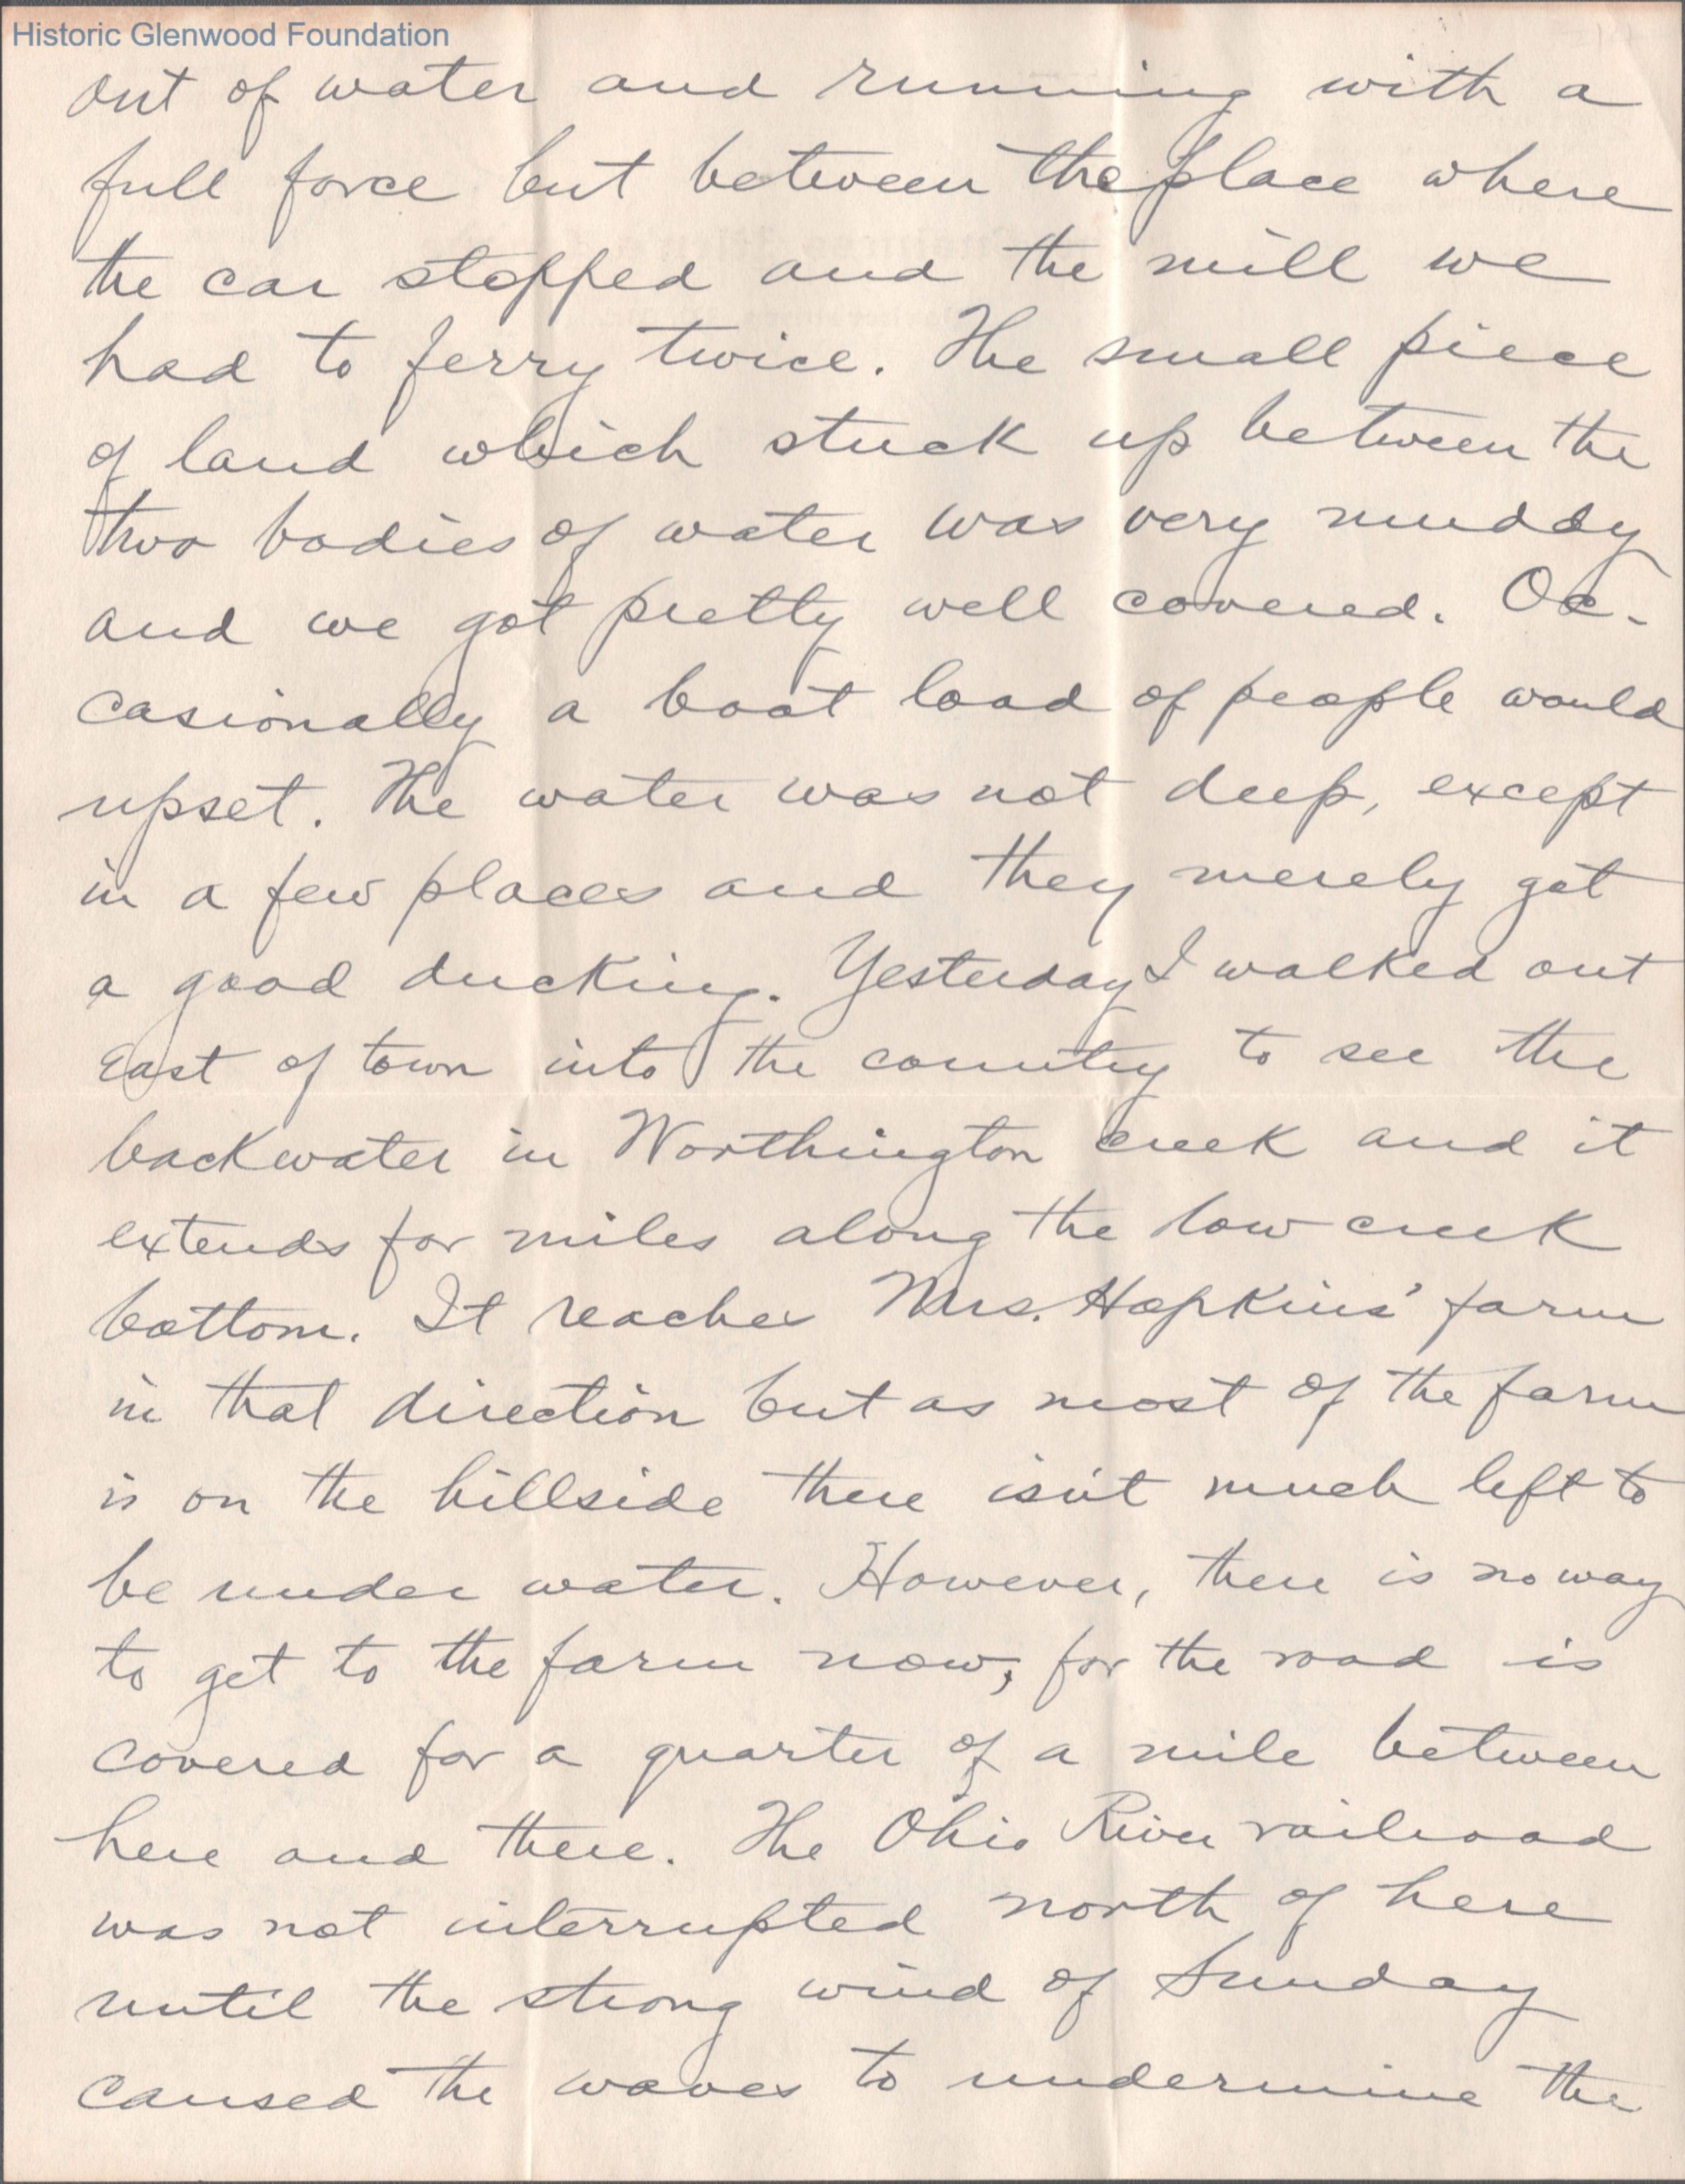 Historic Glenwood Foundation
out of water and running with a
full force but between the place where
the car stopped and the mill we
had to ferry twice. The small piece
of land which stuck up between the
two bodies of water was very muddy
and we got pretty well covered. Oc-
casionally a boat load of people would
upset. The water was not deep, except
in a few places and they merely got
a good ducking. Yesterday I walked out
East of town into the country to see the
backwater in Worthington creek and it
extends for miles along the low creek
bottom. It reaches Mrs. Hopkins' farm
in that direction but as most of the farm
is on the hillside there isn't much left to
be under water. However, there is no way
to get to the farm now, for the road is
covered for a quarter of a mile between
here and there. The Ohio River railroad
was not interrupted north of here
until the strong wind of Sunday
caused the waves to undermine the